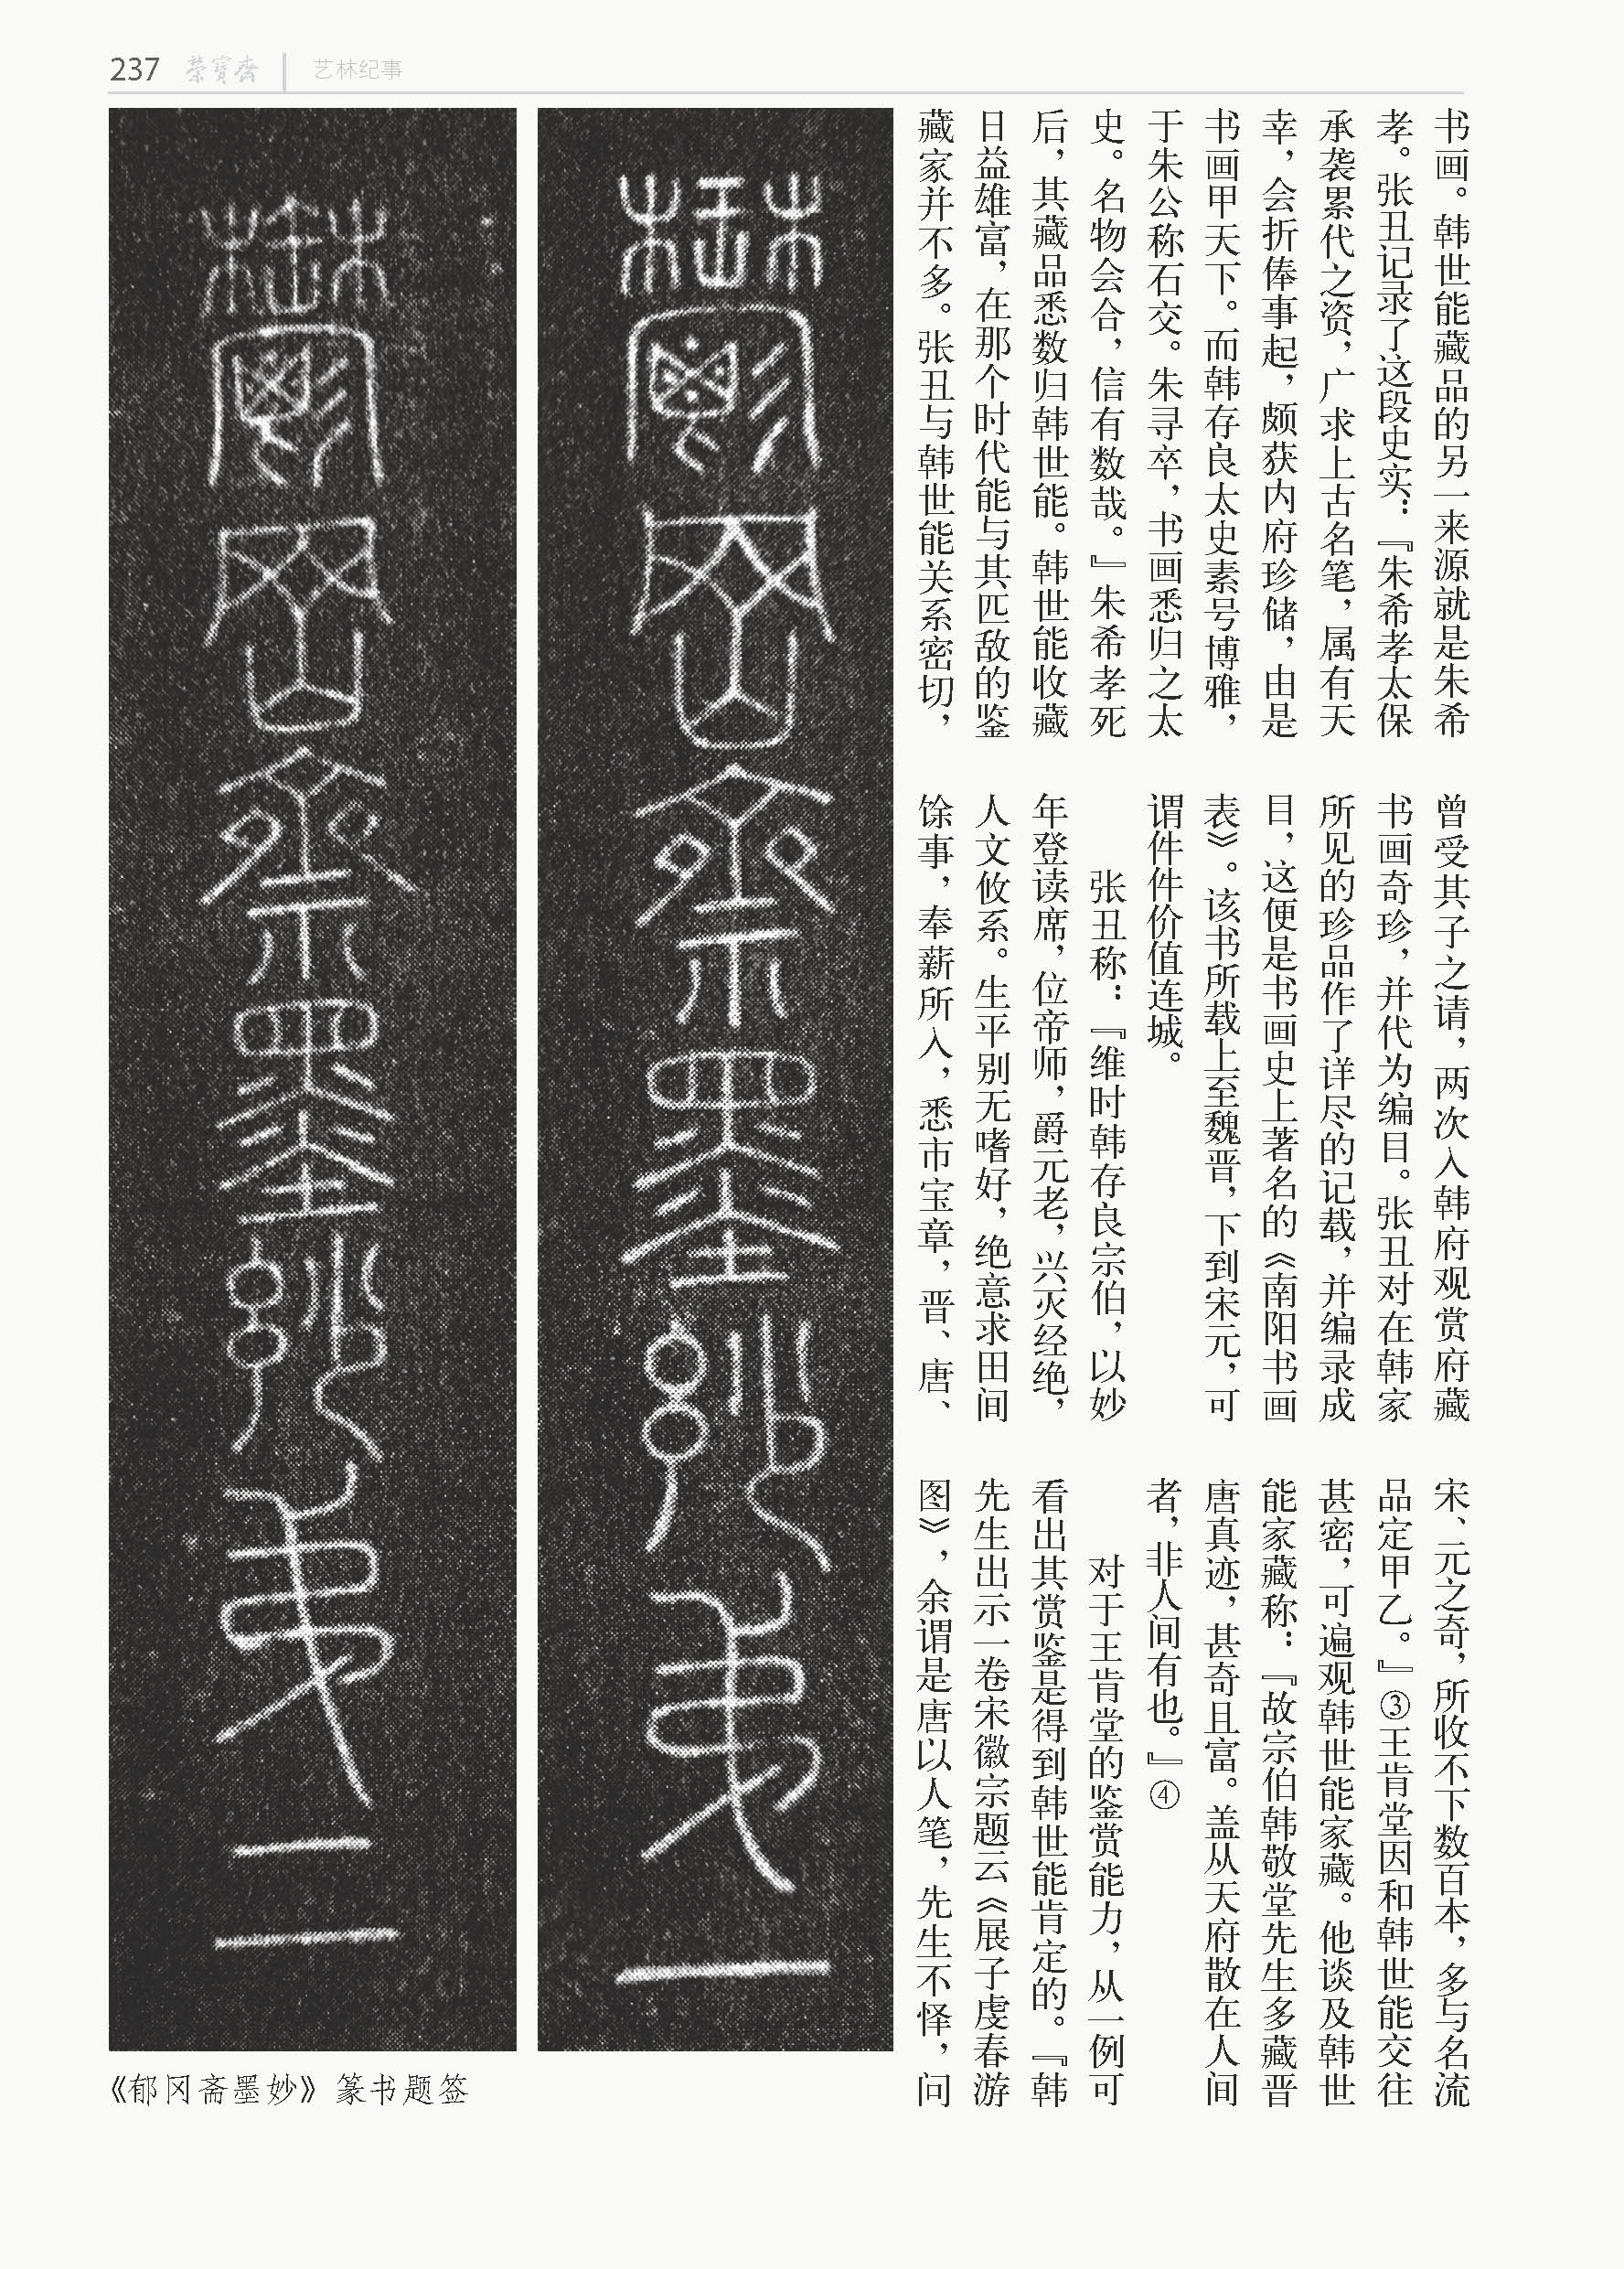 237 荣宝斋 艺林纪事
书画。韩世能藏品的另一来源就是朱希
孝。张丑记录了这段史实：『朱希孝太保
承袭累代之资，广求上古名笔，属有天
幸，会折俸事起，颇获内府珍储，由是
书画甲天下。而韩存良太史素号博雅，
于朱公称石交。朱寻卒，书画悉归之太
史。名物会合，信有数哉。』朱希孝死
后，其藏品悉数归韩世能。韩世能收藏
日益雄富，在那个时代能与其匹敌的鉴
藏家并不多。张丑与韩世能关系密切，
曾受其子之请，两次入韩府观赏府藏
书画奇珍，并代为编目。张丑对在韩家
所见的珍品作了详尽的记载，并编录成
目，这便是书画史上著名的《南阳书画
表》。该书所载上至魏晋，下到宋元，可
谓件件价值连城。
张丑称：『维时韩存良宗伯，以妙
年登读席，位帝师，爵元老，兴灭经绝，
人文攸系。生平别无嗜好，绝意求田间
馀事，奉薪所入，悉市宝章，晋、唐、
宋、元之奇，所收不下数百本，多与名流
品定甲乙。』③王肯堂因和韩世能交往
甚密，可遍观韩世能家藏。他谈及韩世
能家藏称：『故宗伯韩敬堂先生多藏晋
唐真迹，甚奇且富。盖从天府散在人间
者，非人间有也。』④
对于王肯堂的鉴赏能力，从一例可
看出其赏鉴是得到韩世能肯定的。『韩
先生出示一卷宋徽宗题云《展子虔春游
图》，余谓是唐以人笔，先生不怿，问
鬱岡齋墨妙弟一
鬱岡齋墨妙弟二
《郁冈斋墨妙》篆书题签